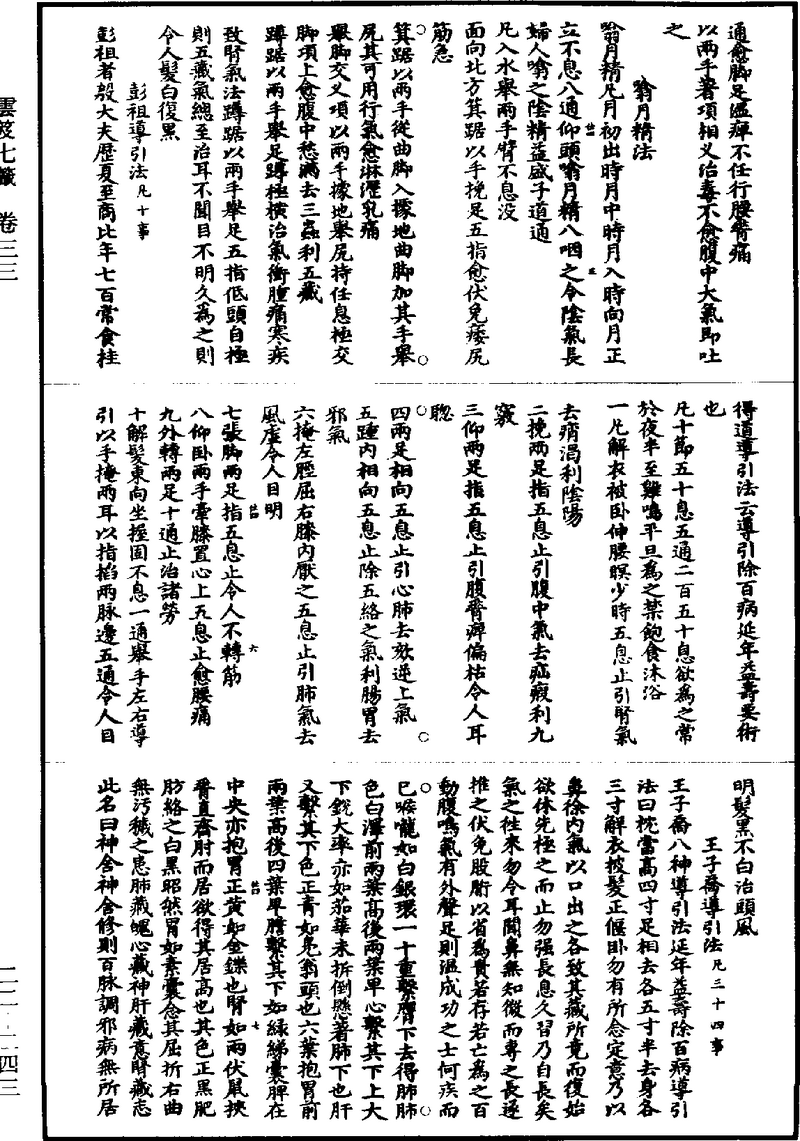 通愈脚足溫痺不任行腰脊痛
以兩手著項相叉治毒不愈腹中大氣即吐
之
噏月精法
噏月精凡月初出時月中時月入時向月正
立不息八通仰頭噏月精八咽之令陰氣長
婦人噏之陰精益盛子道通
凡入水舉兩手臂不息没
面向北方箕踞以手挽足五指愈伏兔痿尻
筋急
箕踞以兩手從曲脚入據地曲脚加其手舉
尻其可用行氣愈淋瀝乳痛
舉脚交叉項以兩手據地舉尻持任息極交
脚項上愈腹中愁滿去三蟲利五藏
蹲踞以兩手舉足蹲極橫治氣衝腫痛寒疾
致腎氣法蹲踞以兩手舉足五指低頭自極
則五藏氣總至治耳不聞目不明久為之則
令人髮白復黑
彭祖導引法凡十事
彭祖者殷大夫歷夏至商比年七百常食桂
得道導引法云導引除百病延年益壽要術
也
凡十節五十息五通二百五十息欲為之常
於夜半至雞鳴平旦為之禁飽食沐浴
一凡解衣被卧伸腰瞑少時五息止引腎氣
去消渴利陰陽
二挽兩足指五息止引腹中氣去疝瘕利九
竅
三仰兩足指五息止引腹脊痺偏枯令人耳
聦
四兩足相向五息止引心肺去欬逆上氣
五踵内相向五息止除五絡之氣利腸胃去
邪氣
六掩左脛屈右膝内厭之五息止引肺氣去
風虛令人目明
七張脚兩足指五息止令人不轉筋
八仰卧兩手牽膝置心上五息止愈腰痛
九外轉兩足十通止治諸勞
十解髮東向坐握固不息一通舉手左右導
引以手掩兩耳以指掐兩脉邊五通令人目
明髮黑不白治頭風
王子喬導引法凡三十四事
王子喬八神導引法延年益壽除百病導引
法曰枕當高四寸足相去各五寸半去身各
三寸解衣被髮正偃卧勿有所念定意乃以
鼻徐内氣以口出之各致其藏所竟而復始
欲休先極之而止勿强長息久習乃自長矣
氣之往來勿令耳聞鼻無知微而專之長遂
推之伏兔股胻以省為貴若存若亡為之百
動腹鳴氣有外聲足則溫成功之士何疾而
已喉嚨如白銀環一十重繫膺下去得肺肺
色白澤前兩葉高後兩葉卑心繫其下上大
下銳大率赤如茄華未拆倒懸著肺下也肝
又繫其下色正青如鳧翁頭也六葉抱胃前
兩葉高後四葉卑膽繫其下如綠綈囊脾在
中央亦抱胃正黄如金鑠也腎如兩伏鼠挾
脊直齊肘而居欲得其居高也其色正黑肥
肪絡之白黑昭然胃如素囊念其屈折右曲
無污穢之患肺藏魄心藏神肝藏意腎藏志
此名曰神舍神舍修則百脉調邪病無所居
雲笈七籤 卷三三